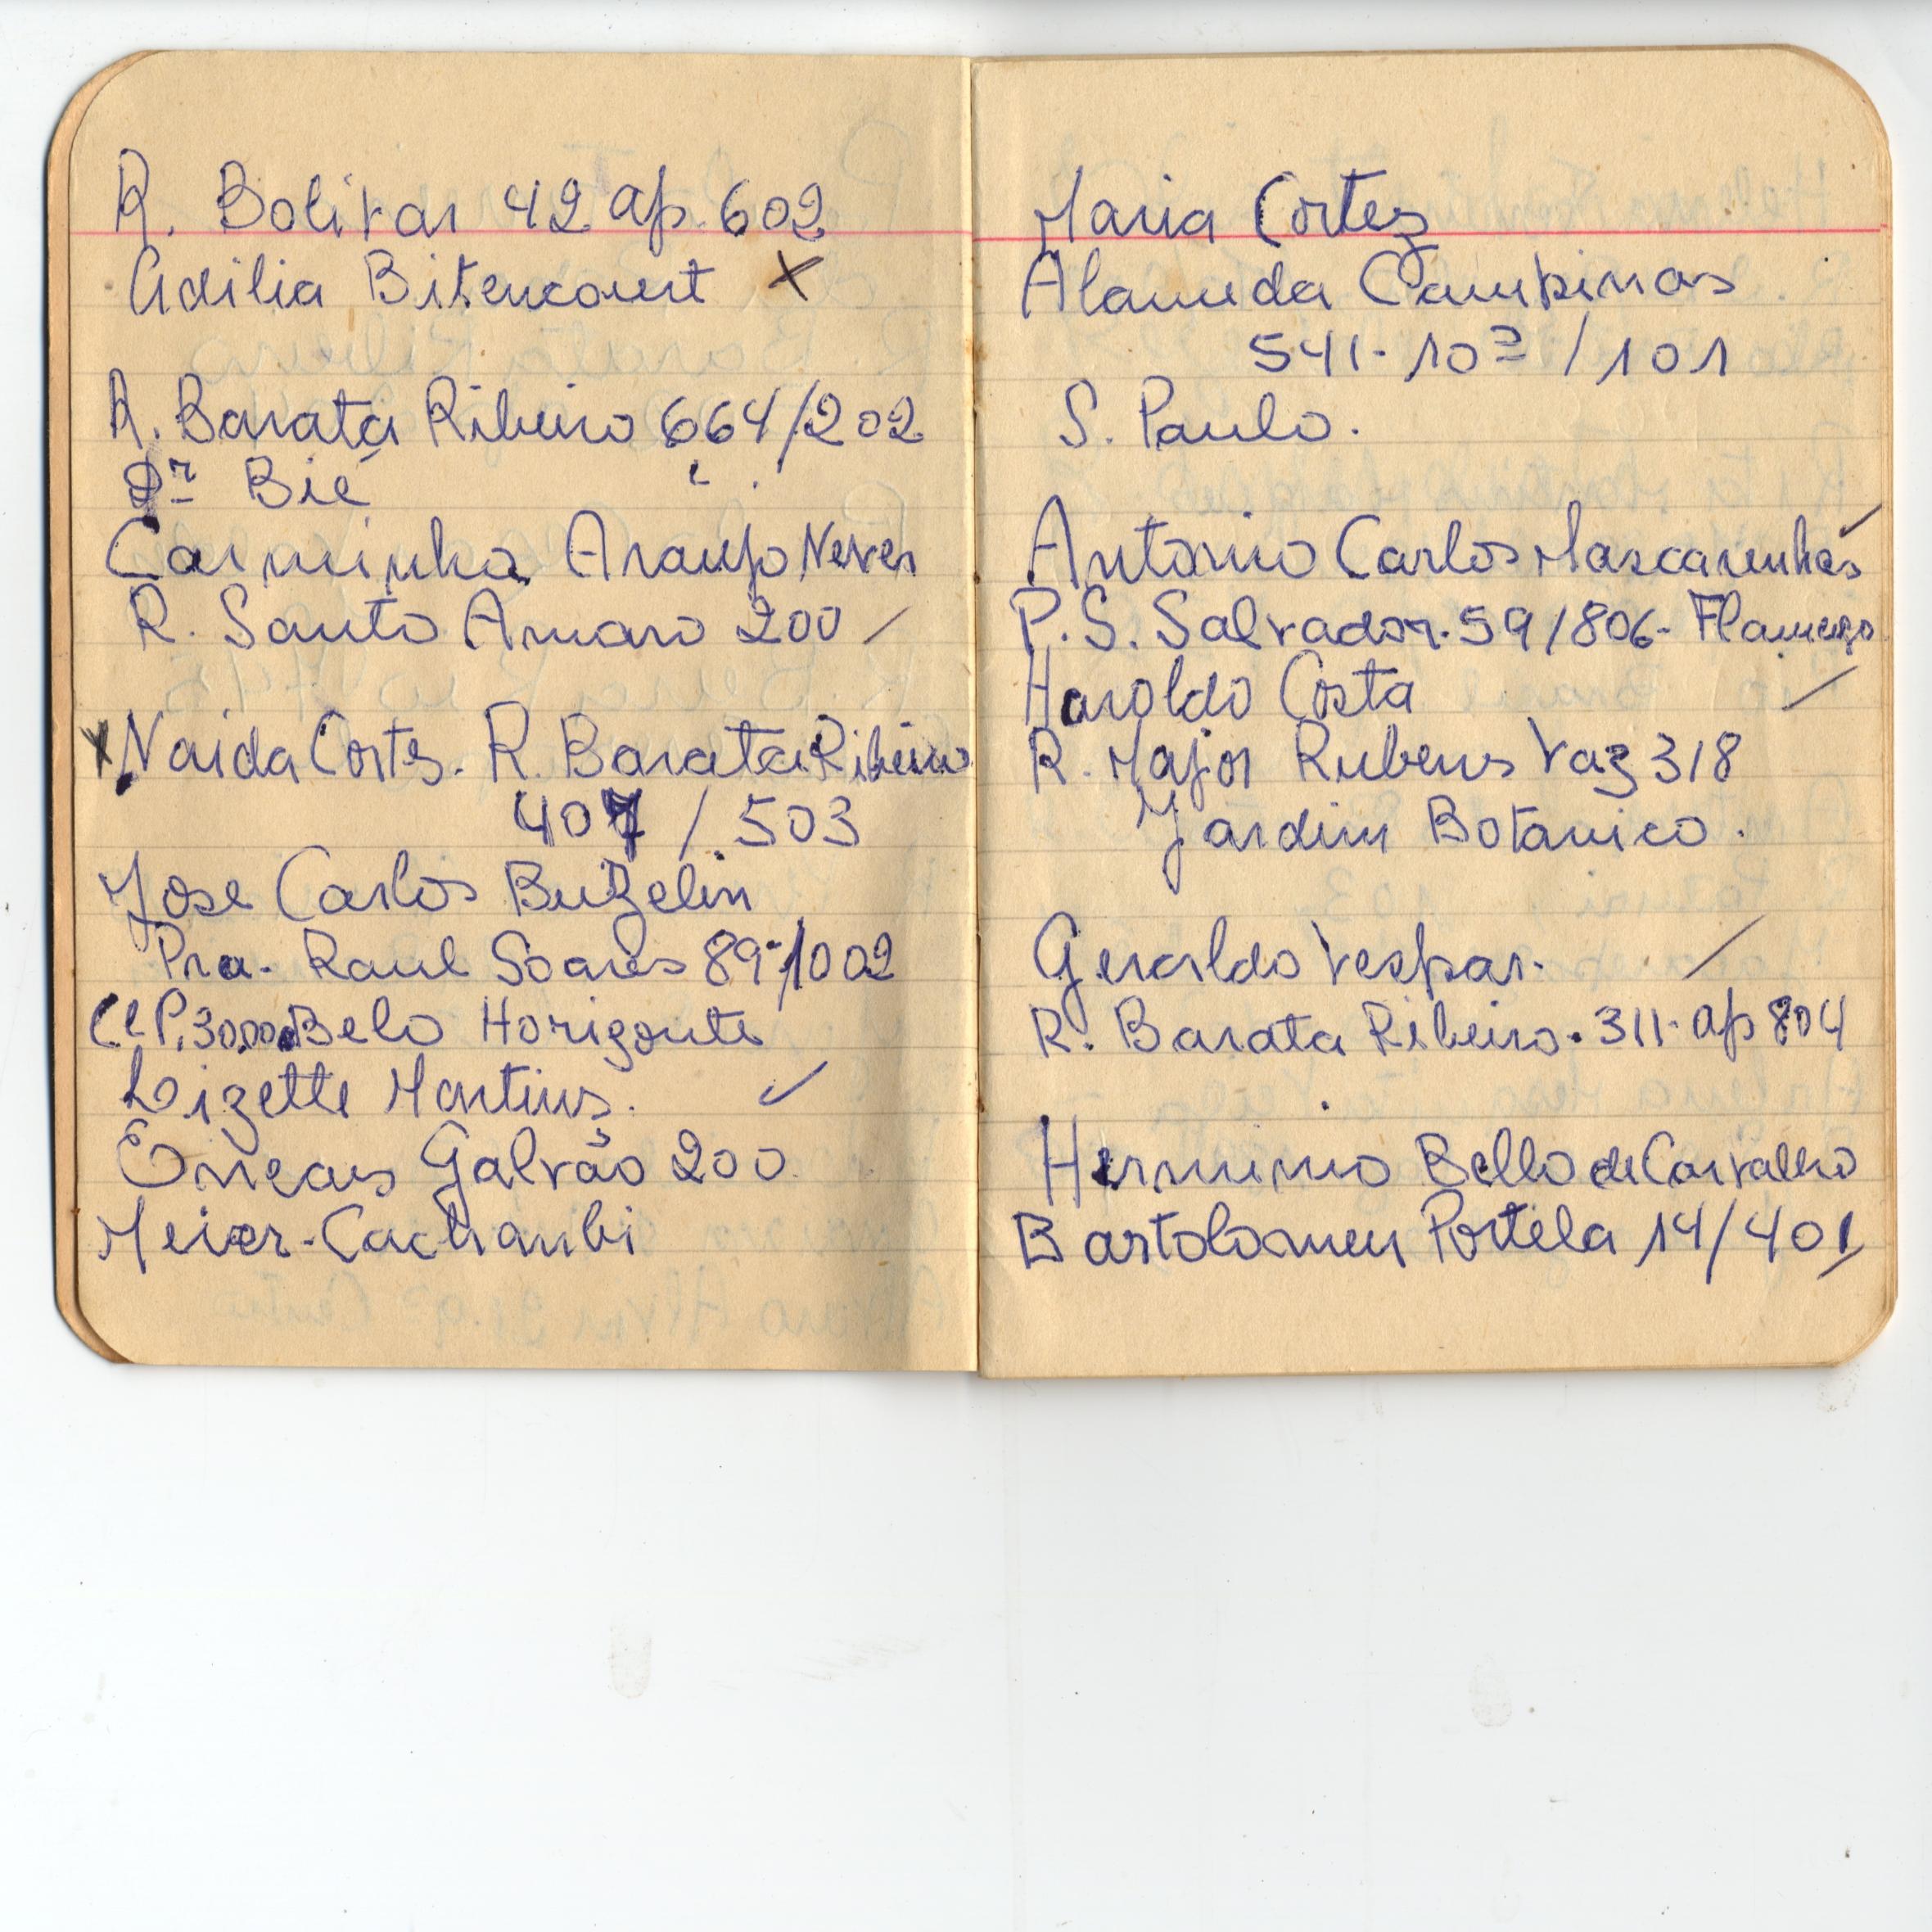 R. Bolivar 42 ap. 602
Adilia Bitencourt X
R. Barata Ribeiro 664/202
Dr Bié
Carminha Araujo Neves
R. Santo Amaro 200
X Naida Cortes. R. Barata Ribeiro
407 / 503
Jose Carlos Buzelin
Pra. Raul Soares 89-1002
CEP. 30.000 Belo Horizonte
Lizette Martins. ✓
Eneas Galvão 200.
Meier-Cachambi
Maria Cortez
Alameda Campinas
541-10º / 101
S. Paulo.
Antonio Carlos Mascarenhas
P. S. Salvador. 59/806- Flamengo
Haroldo Costa
R. Major Rubens Vaz 318
Jardim Botanico.
Geraldo Vespar.
R. Barata Ribeiro. 311- ap 804
Herminio Bello de Carvalho
Bartolomeu Portela 14/401